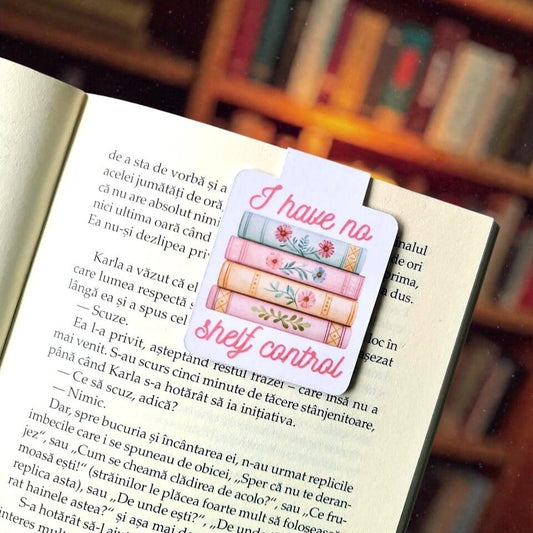 de a sta de vorbă și a
acelei jumătăți de oră,
că nu are absolut nimi
nici ultima oară când
Ea nu-și dezlipea priv
nalul
de ori
prima,
a dus.
I have no
shelf control
Karla a văzut că el
care lumea respectă s
lângă ea și a spus cel
loc în
șezat
— Scuze.
Ea l-a privit, așteptând restul frazei – care însă nu a
mai venit. S-au scurs cinci minute de tăcere stânjenitoare,
până când Karla s-a hotărât să ia inițiativa.
— Ce să scuz, adică?
— Nimic.
Dar, spre bucuria și încântarea ei, n-au urmat replicile
imbecile care i se spuneau de obicei, „Sper că nu te deran-
jez“, sau „Cum se cheamă clădirea de acolo?“, sau „Ce fru-
moasă ești!“ (străinilor le plăcea foarte mult să folosească
replica asta), sau „De unde ești?“, „De unde
rat hainele astea?“ și așa mai d
S-a hotărât să-l
interes mult